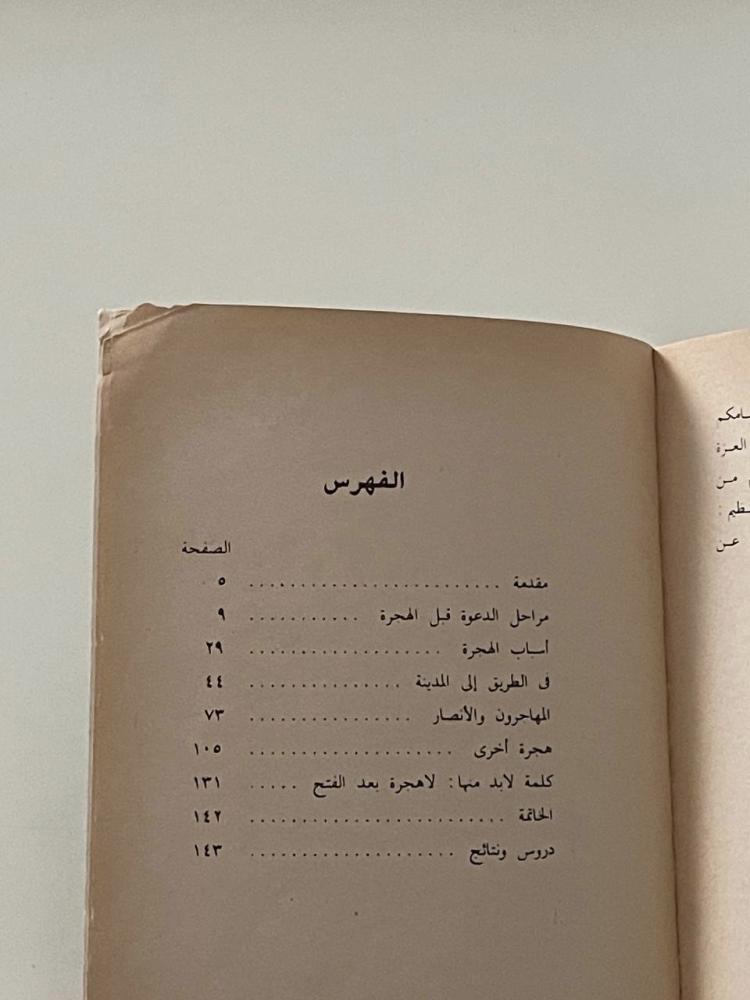 الفهرس
الصفحة
مقدمة ......................... ٥
مراحل الدعوة قبل الهجرة ........... ٩
أسباب الهجرة ................... ٢٩
فى الطريق إلى المدينة ............... ٤٤
المهاجرون والأنصار ................ ٧٣
هجرة أخرى .................... ١٠٥
كلمة لابد منها: لاهجرة بعد الفتح ..... ١٣١
الخاتمة ......................... ١٤٢
دروس ونتائج .................... ١٤٣
العزة
من
عن